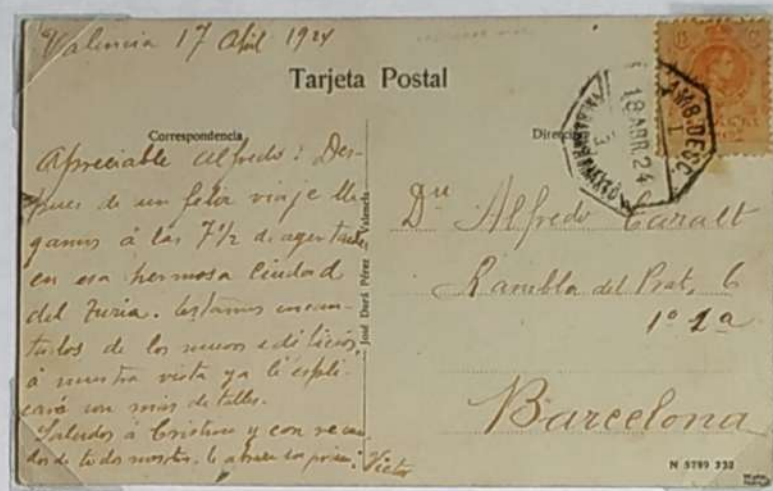 Valencia 17 Abril 1924
Tarjeta Postal
Correspondencia
Apreciable Alfredo: Des-
pues de un feliz viaje lle
gamos á las 7½ de ayer tarde
en esa hermosa Ciudad
del Turia. Estamos encan-
tados de los nuevos edificios,
á nuestra vista ya le expli-
caré con más detalles.
Saludos á Cristina y con recuer
dos de todos nosotros, le abraza su primo Victor
José Durá Pérez Valencia
AMB. DESC
18 ABR. 24
Dn Alfredo Caralt
Rambla del Prat, 6
1º 2ª
Barcelona
N 5789 332